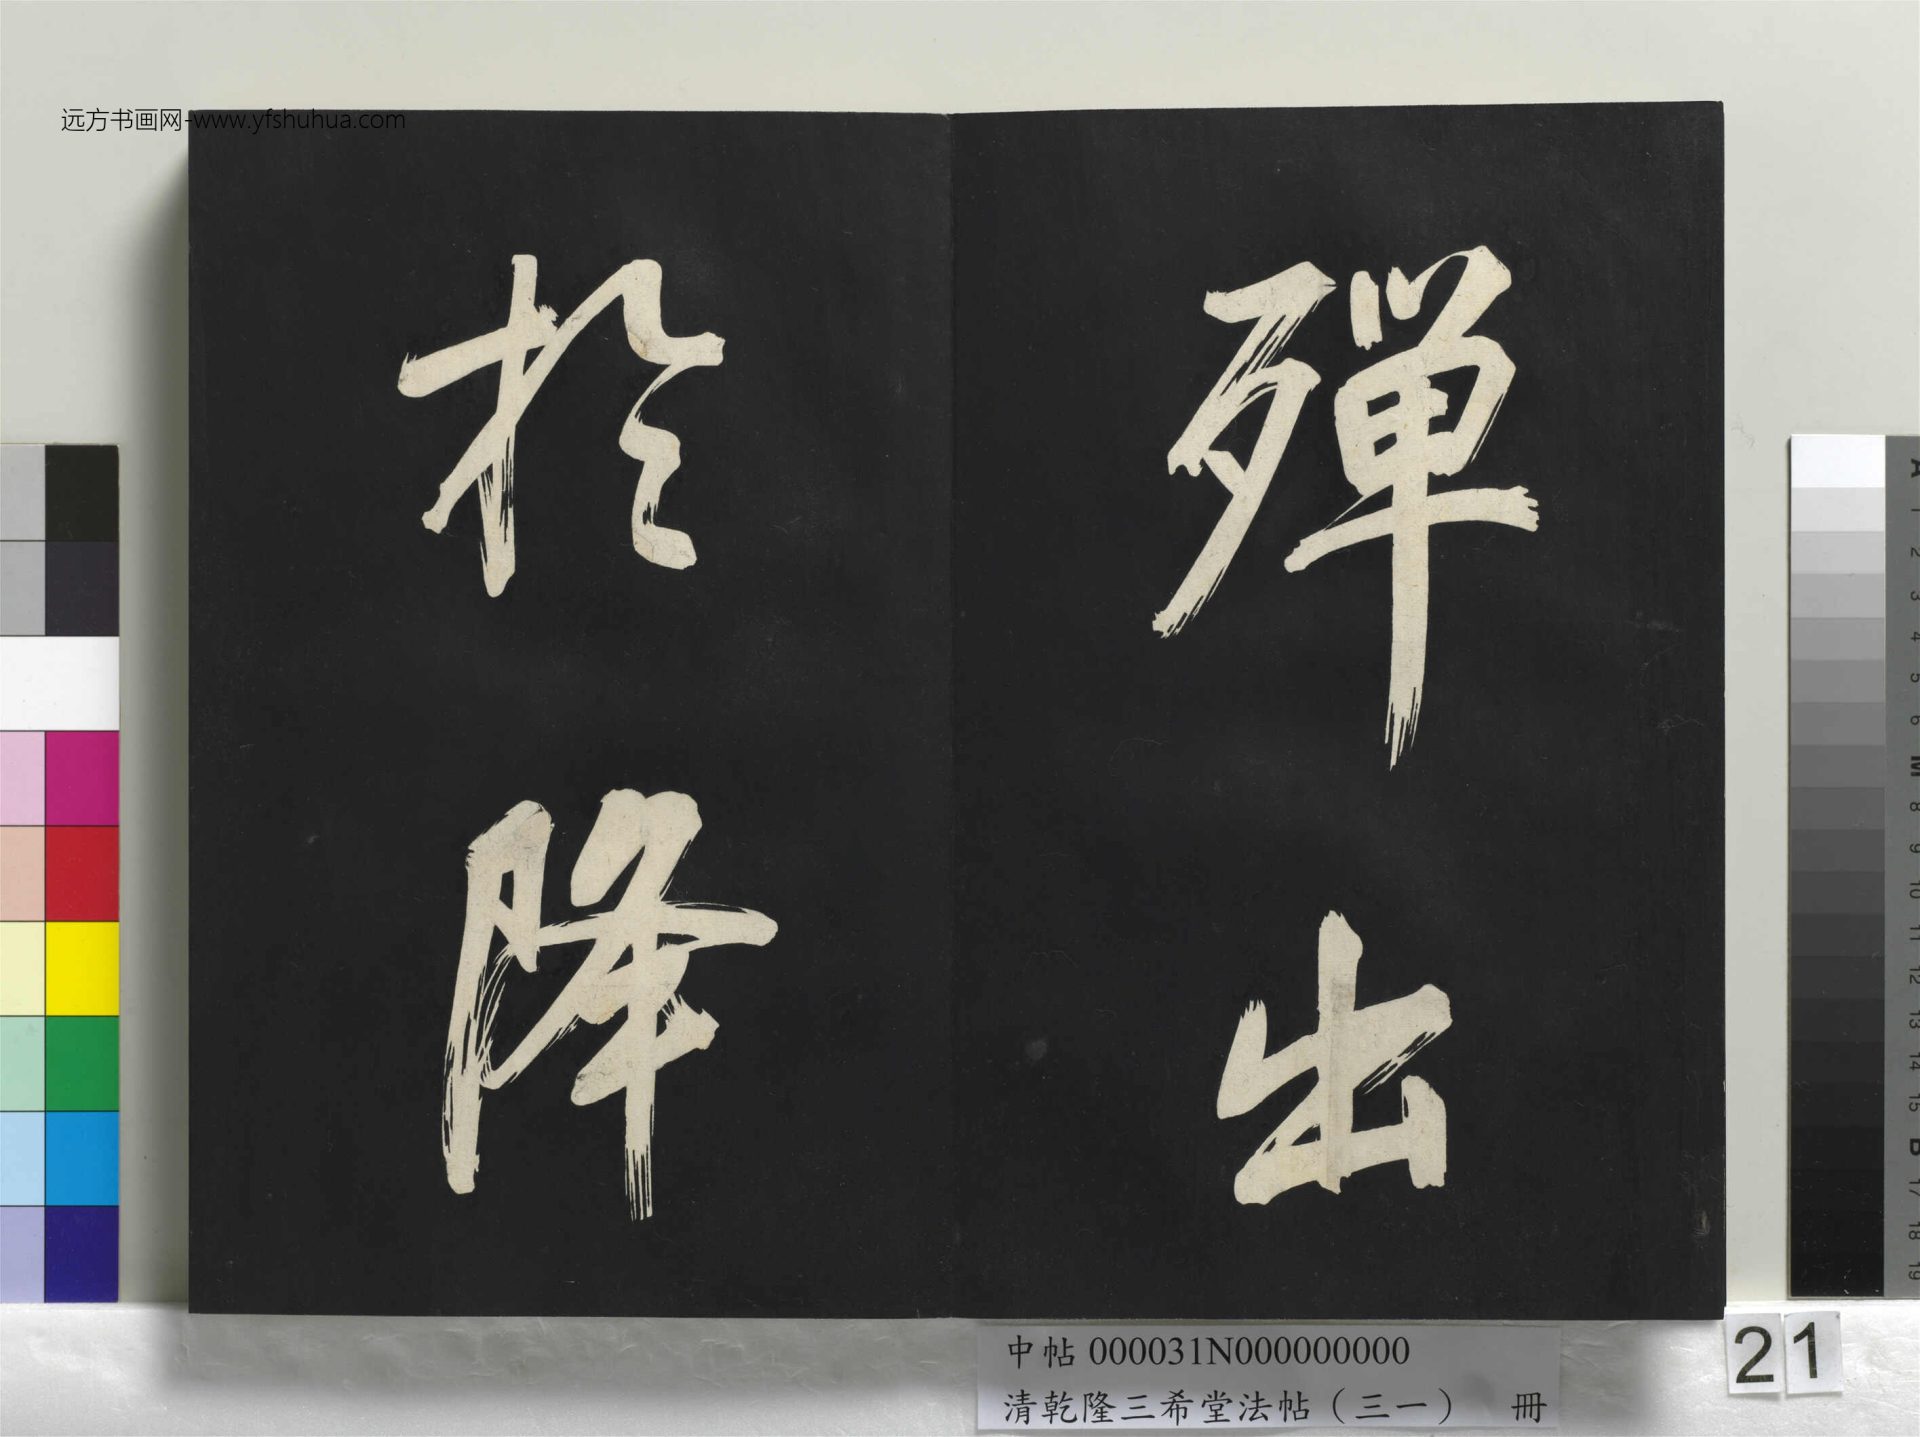 远方书画网-www.yfshuhua.com
殫出
於降
中帖 000031N000000000
清乾隆三希堂法帖（三一） 冊
21
A
1
2
3
4
5
6
M
8
9
10
11
12
13
14
15
B
17
18
19